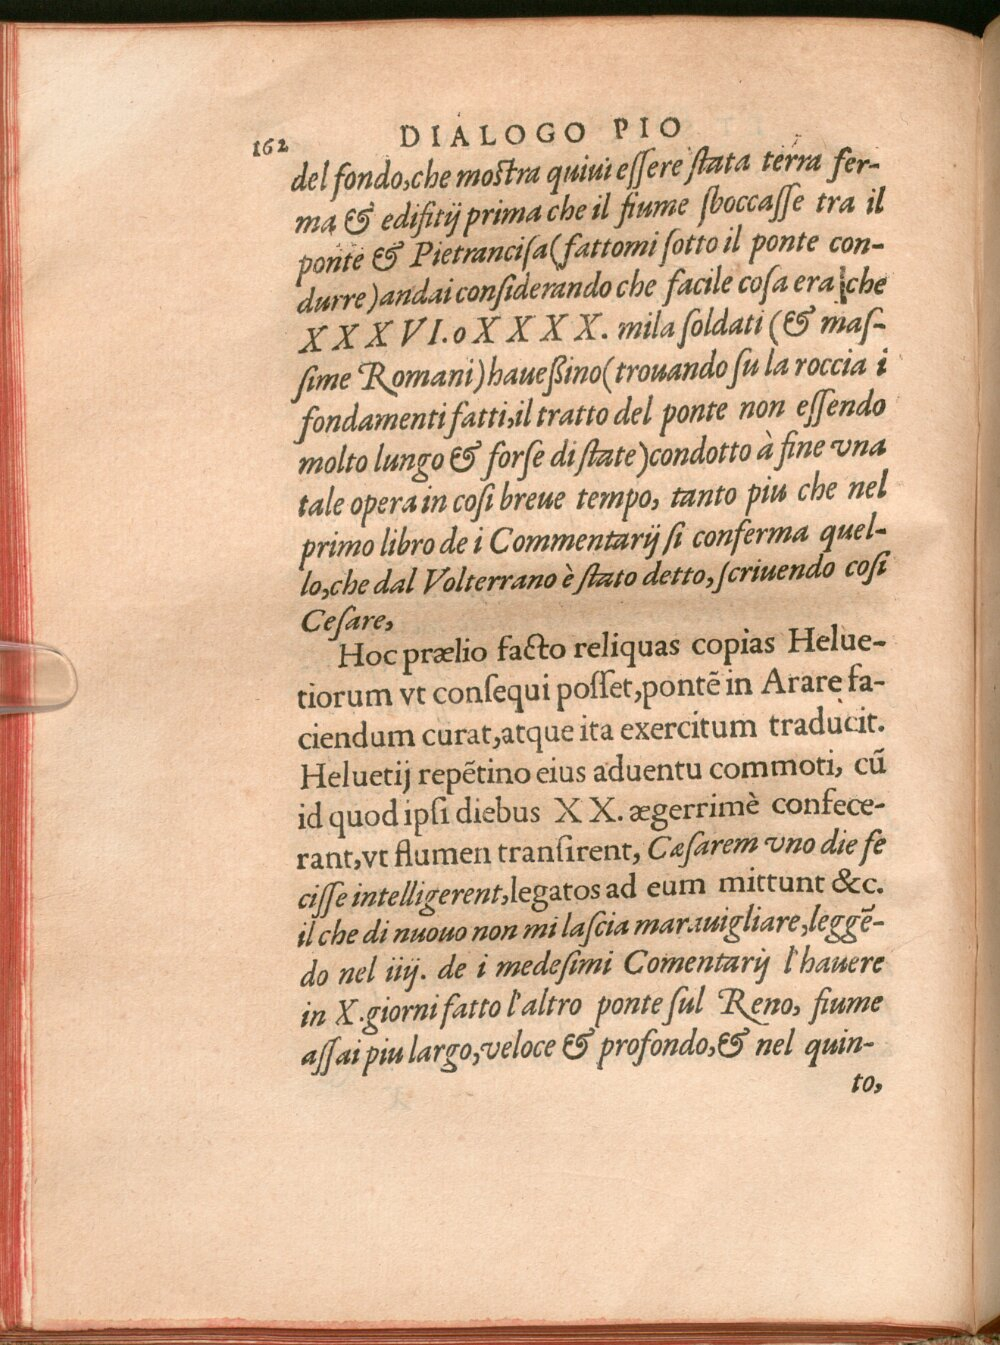 162 DIALOGO PIO
del fondo, che moſtra quiui eſſere ſtata terra fer-
ma & edifitij prima che il fiume ſboccaſſe tra il
ponte & Pietranciſa (fattomi ſotto il ponte con-
durre) andai conſiderando che facile coſa era che
XXXVI. o XXXX. mila ſoldati (& maſ-
ſime Romani) haueßino (trouando ſu la roccia i
fondamenti fatti, il tratto del ponte non eſſendo
molto lungo & forſe di ſtate) condotto à fine vna
tale opera in coſi breue tempo, tanto piu che nel
primo libro de i Commentarij ſi conferma quel-
lo, che dal Volterrano è ſtato detto, ſcriuendo coſi
Ceſare,
Hoc prælio facto reliquas copias Helue-
tiorum vt conſequi poſſet, pontē in Arare fa-
ciendum curat, atque ita exercitum traducit.
Heluetij repētino eius aduentu commoti, cū
id quod ipſi diebus XX. ægerrimè confece-
rant, vt flumen tranſirent, Cæſarem vno die fe
ciſſe intelligerent, legatos ad eum mittunt &c.
il che di nuouo non mi laſcia marauigliare, leggē-
do nel iiij. de i medeſimi Comentarij l'hauere
in X. giorni fatto l'altro ponte ſul Reno, fiume
aſſai piu largo, veloce & profondo, & nel quin-
to,